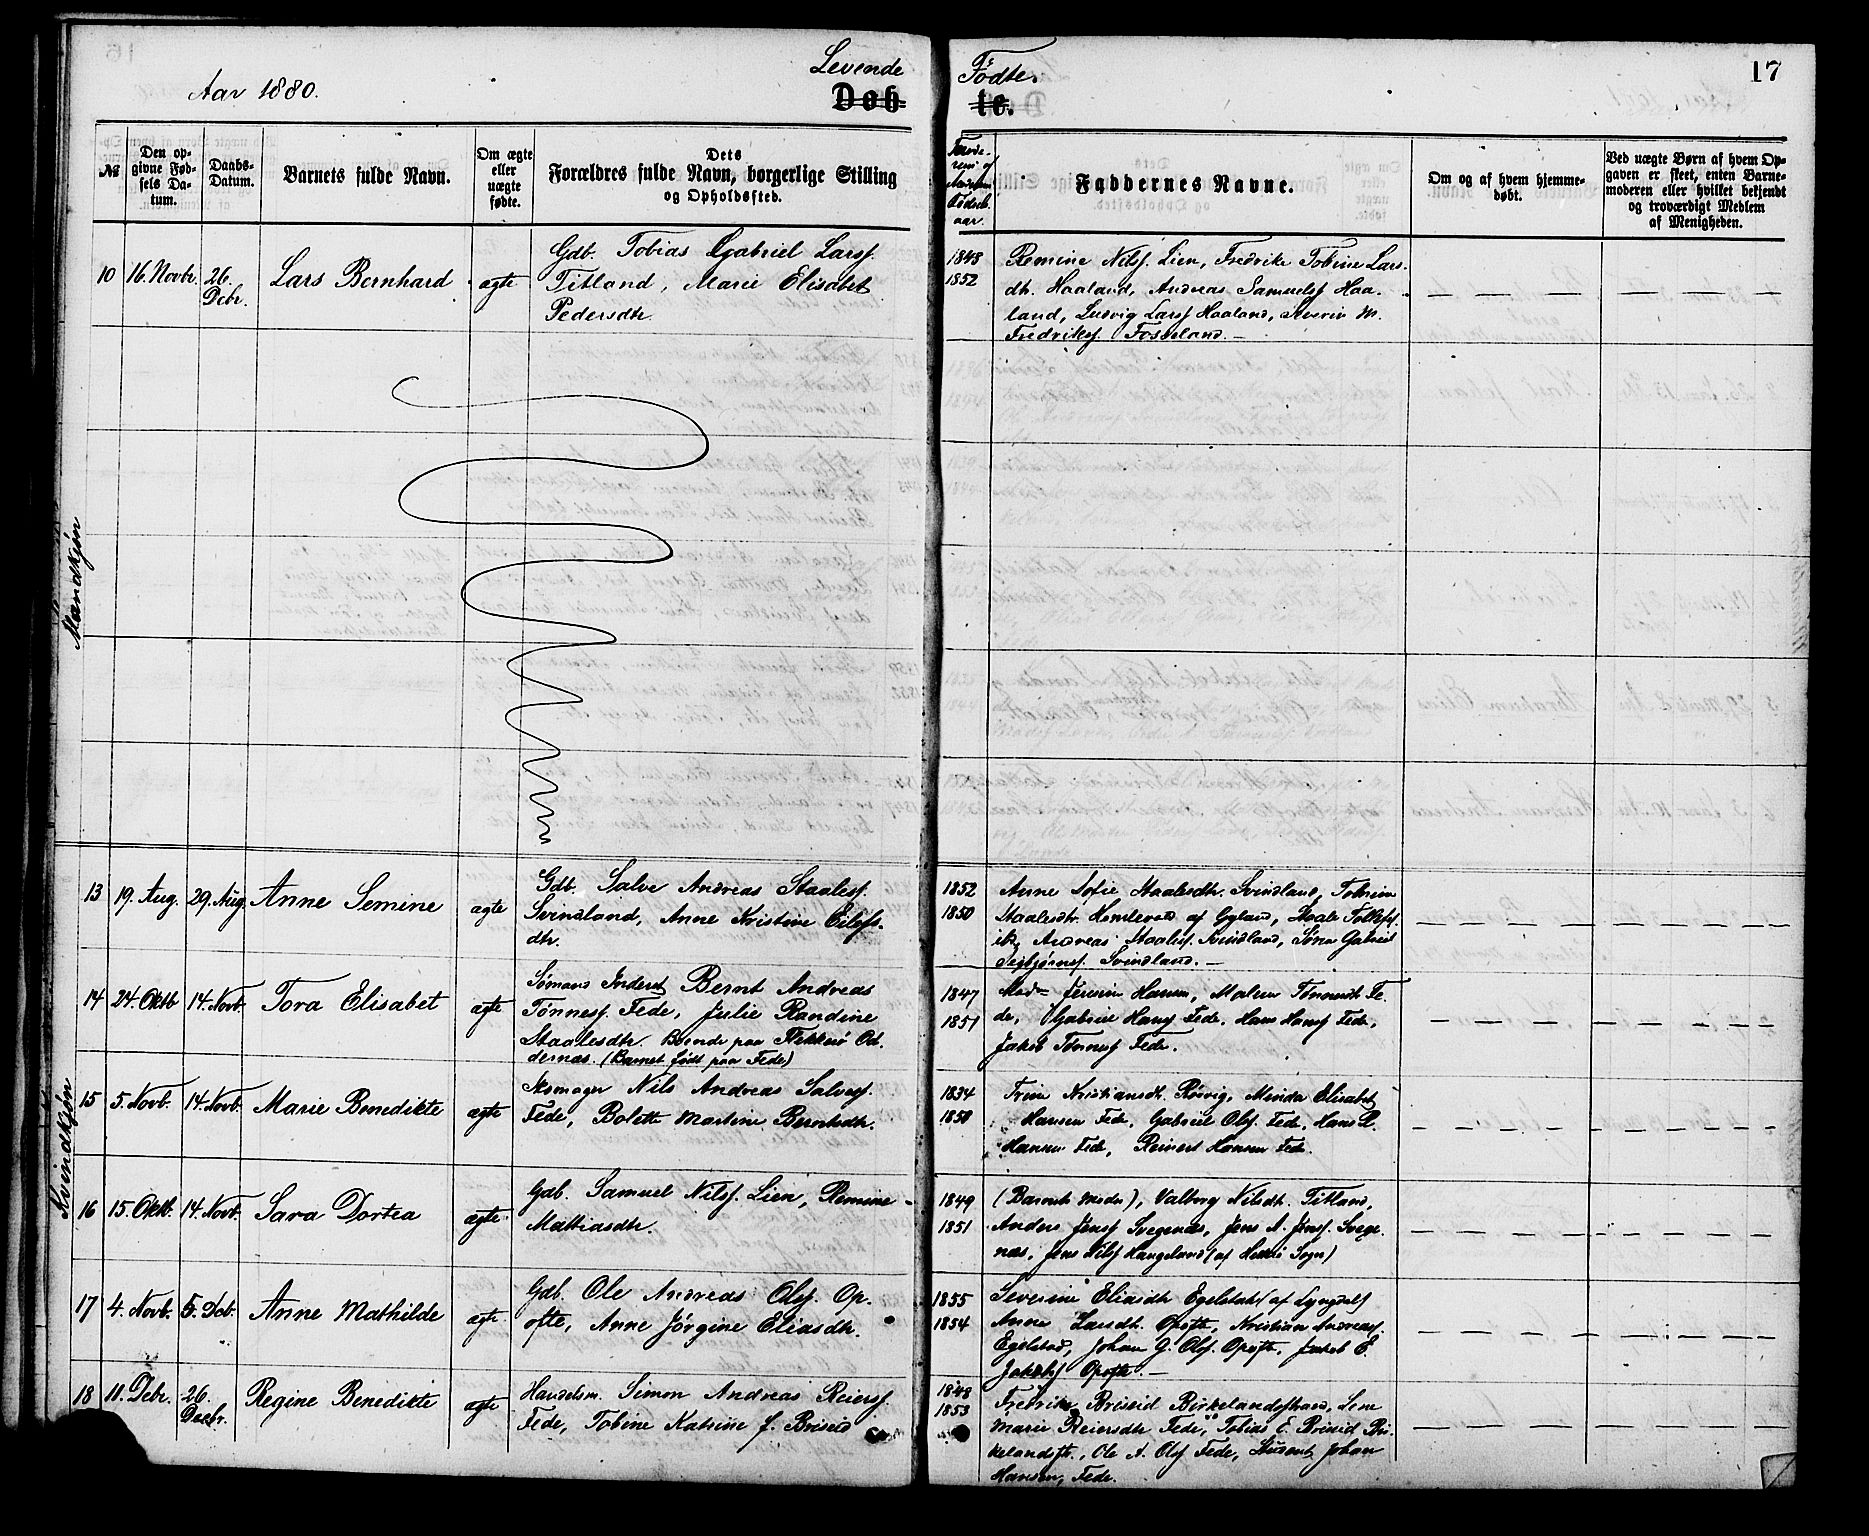 Aar 1880.
Levende
Fødte.
17
Døb-
te.
№
Den op-
givne Fød-
sels Da-
tum.
Daabs-
Datum.
Barnets fulde Navn.
Om ægte
eller
uægte
fødte.
Dets
Forældres fulde Navn, borgerlige Stilling
og Opholdssted.
Fødsels
aar.
Faddernes Navne.
Om og af hvem hjemme-
døbt.
Ved uægte Børn af hvem Op-
gaven er skeet, enten Barne-
moderen eller hvilket bekjendt
og troværdigt Medlem
af Menigheden.
Mandkjøn
10
16 Novbr.
26.
Debr.
Lars Bernhard
ægte
Gdb. Tobias Gabriel Larss.
Titland, Marie Elisabet
Pedersdtr.
1848
1852
Remine Nilsf. Lien, Fredrike Tobine Lars-
dtr. Haaland, Andreas Samuelsf. Haa-
land, Ludvig Larsf. Haaland, M.
Fredriksf. Fosseland. —
Kvindekjøn
13
19. Aug.
29. Aug.
Anne Semine
ægte
Gdb. Salve Andreas Staalesf.
Svindland, Anne Kristine Eilefs-
dtr.
1852
1850
Anne Sofie Staalesdtr. Svindland,
Staalesdtr. af Gyland, Staale
Andreas Staalesf. Svindland, Søren Gabriel
Svindland. —
14
24. Oktb.
14. Novb.
Tora Elisabet
ægte
Sømand Inderst Bernt Andreas
Tønnesf. Fede, Julie Randine
Staalesdtr. Boende paa Flekkerø Od-
dernæs. (Barnet født paa Fede)
1847
1851
Hansen, Malene Tønnesdtr. Fe-
de, Gabriel Hansf. Fede, Hans Hansf. Fede,
Jakob Tønnesf. Fede.
15
5. Novb.
14. Novb.
Marie Benedikte
ægte
Skomager Nils Andreas Salvesf.
Fede, Bolette Martine Berntsdtr.
1834
1850
Trine Kristiansdtr. Rørvig, Minda Elisabet
Hansen Fede, Gabriel Olsf. Fede, Hans R.
Hansen Fede, Reinert Hansen Fede.
16
15. Oktb.
14. Novb.
Sara Dortea
ægte
Gdb. Samuel Nilsf. Lien, Remine
Mathiasdtr.
1849
1851
(Barnets Moder), Valborg Nilsdtr. Titland,
Anders Jensf. Svegenæs, Jens A. Jensf. Svege-
næs, Jens Nilsf. Haugeland (af Sogn)
17
4. Novb.
5. Deb.
Anne Mathilde
ægte
Gdb. Ole Andreas Olsf. Op-
ofte, Anne Jørgine Eliasdtr.
1855
1854
Severine Eliasdtr. Egelstad (af Lyngdal)
Anna Larsdtr. Opofte, Kristian Andreasf.
Egelstad, Johan G. Olsf. Opofte, Jakob E.
Jakobsf. Opofte. —
18
11. Debr.
26.
Decbr.
Regine Benedikte
ægte
Handelsm. Simon Andreas Reiersf.
Fede, Tobine Katrine f. Briseid
1848
1853
Fredrike Briseid Birkelandsthand, Lene
Marie Reiersdtr. Fede, Tobias E. Briseid Bir-
kelandsth., Ole A. Olsf. Fede, Student Johan
Hansen, Fede.